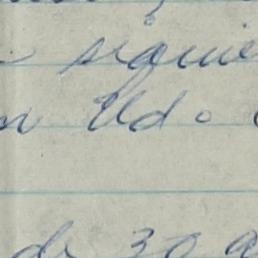 siguie
n Ud.
de 30 a